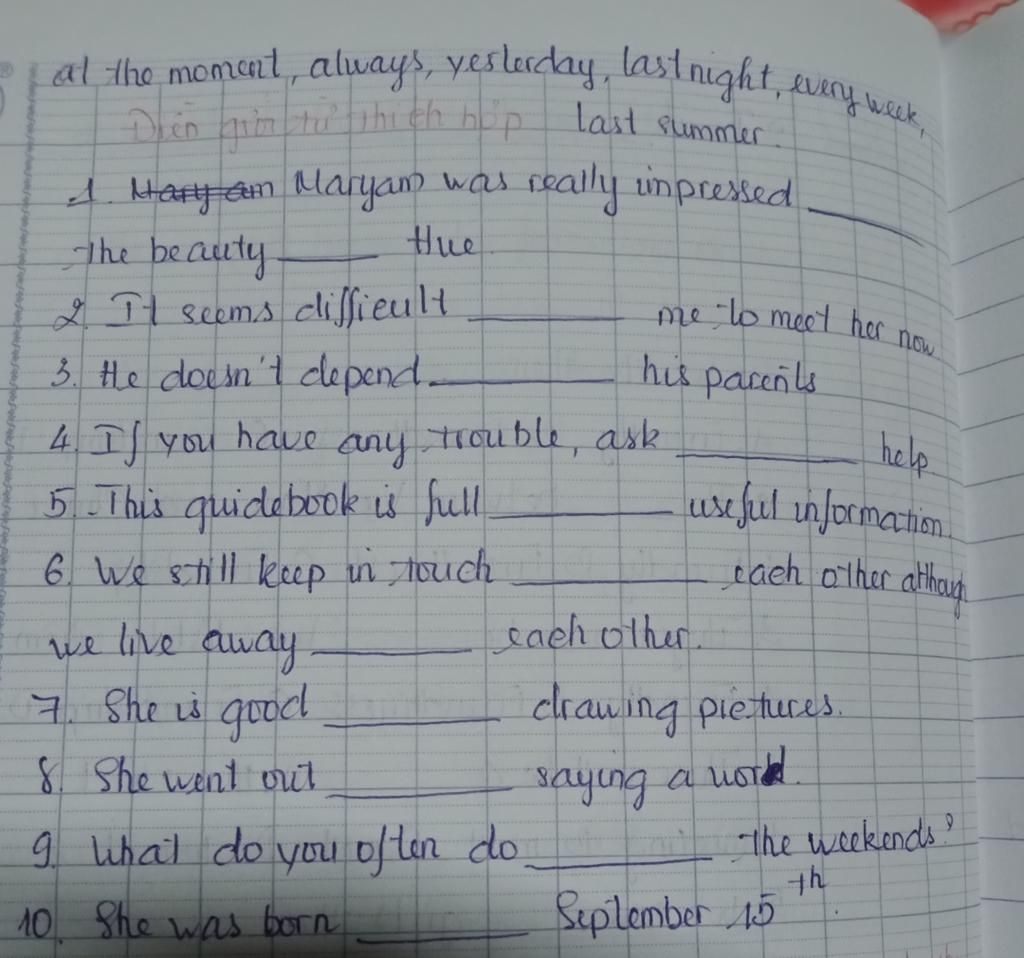 at the moment, always, yesterday, last night, every week,
Điền giới từ thích hợp last summer.
1. Mary am Maryam was really impressed ____
the beauty ____ Hue
2. It seems difficult ____ me to meet her now
3. He doesn't depend ____ his parents
4. If you have any trouble, ask ____ help
5. This guidebook is full ____ useful information.
6. We still keep in touch ____ each other although
we live away ____ each other.
7. She is good ____ drawing pictures.
8. She went out ____ saying a word.
9. What do you often do ____ the weekends?
10. She was born ____ September 15th.